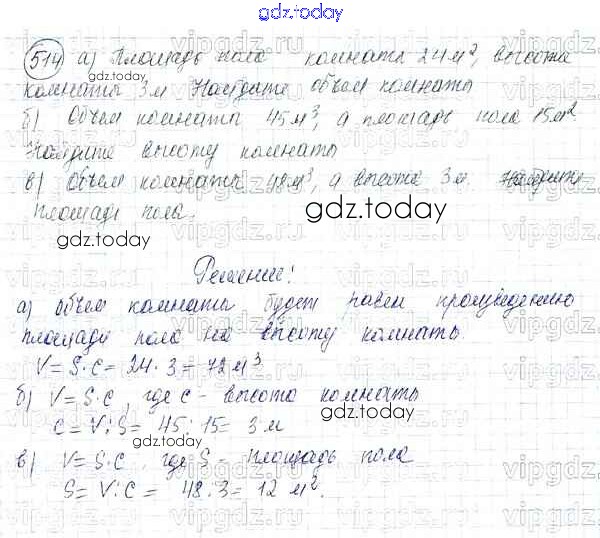 gdz.today
514 а) Площадь пола комнаты 24 м², высота
gdz.today
комнаты 3м Найдите объем комнаты
б) Объем комнаты 45 м³, а площадь пола 15м²
Найдите высоту комнаты
в) Объем комнаты 48 м³, а высота 3 м. Найдите
площадь пола.
gdz.today
gdz.today
Решение!
а) объем комнаты будет равен произведению
площади пола на высоту комнаты.
V = S·c = 24 · 3 = 72 м³
gdz.today
б) V = S·c, где c - высота комнаты
gdz.today
c = V : S = 45 : 15 = 3 м
gdz.today
в) V = S·c, где S - площадь пола
S = V : c = 48 · 3 = 12 м².
gdz.today